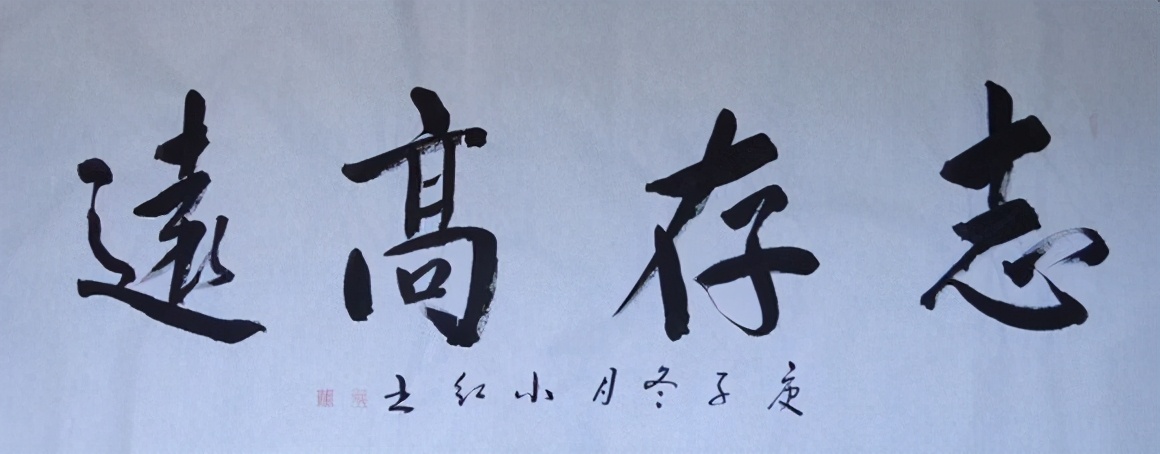 志存高遠
庚子冬月小红书